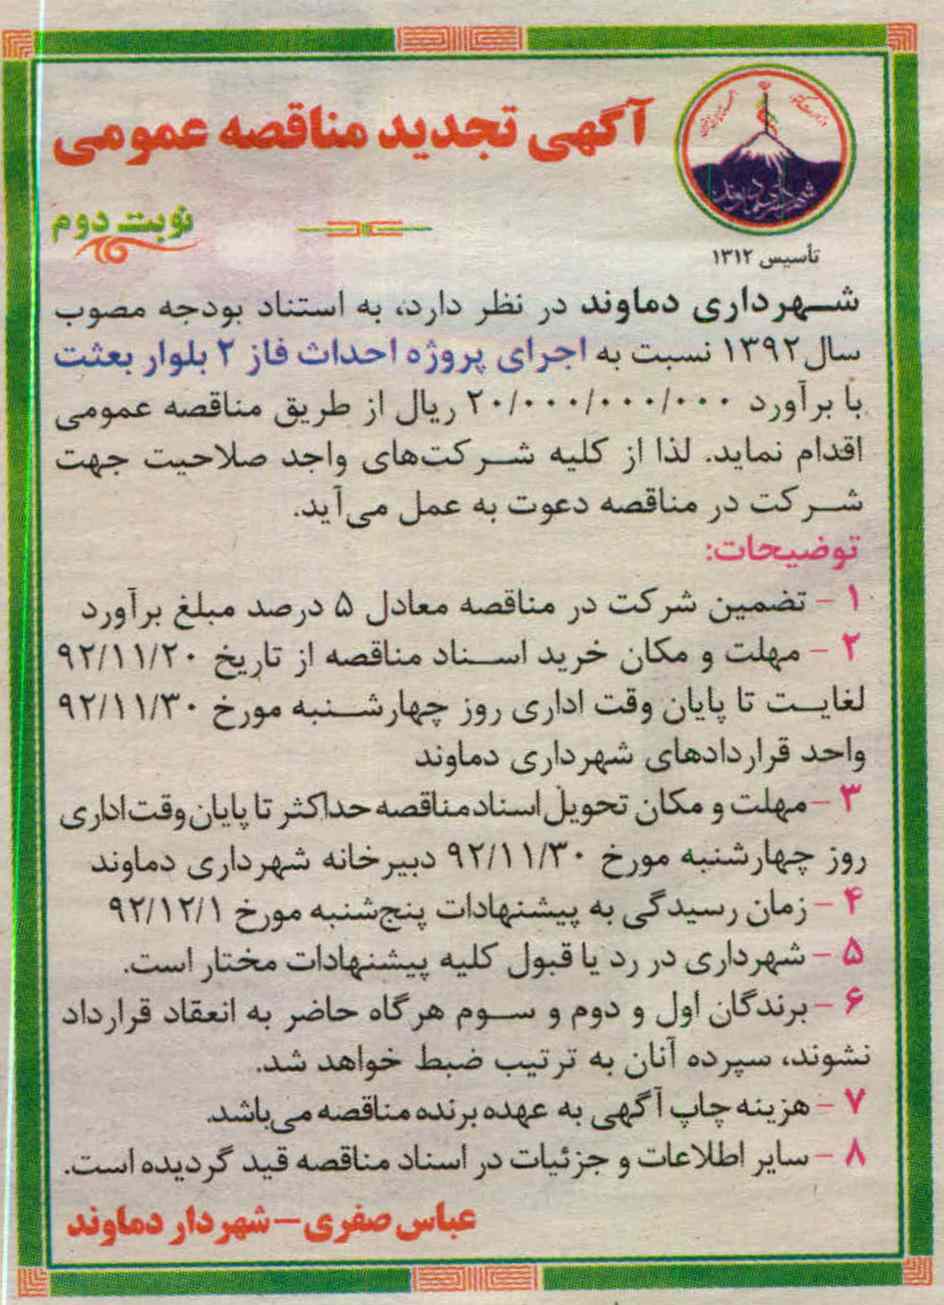 آگهی تجدید مناقصه عمومی
نوبت دوم
شهرداری دماوند
تأسیس ۱۳۱۲
شهرداری دماوند در نظر دارد، به استناد بودجه مصوب
سال ۱۳۹۲ نسبت به اجرای پروژه احداث فاز ۲ بلوار بعثت
با برآورد ۲۰/۰۰۰/۰۰۰/۰۰۰ ریال از طریق مناقصه عمومی
اقدام نماید. لذا از کلیه شرکت‌های واجد صلاحیت جهت
شرکت در مناقصه دعوت به عمل می‌آید.
توضیحات:
۱ - تضمین شرکت در مناقصه معادل ۵ درصد مبلغ برآورد
۲ - مهلت و مکان خرید اسناد مناقصه از تاریخ ۹۲/۱۱/۲۰
لغایت تا پایان وقت اداری روز چهارشنبه مورخ ۹۲/۱۱/۳۰
واحد قراردادهای شهرداری دماوند
۳ - مهلت و مکان تحویل اسناد مناقصه حداکثر تا پایان وقت اداری
روز چهارشنبه مورخ ۹۲/۱۱/۳۰ دبیرخانه شهرداری دماوند
۴ - زمان رسیدگی به پیشنهادات پنج‌شنبه مورخ ۹۲/۱۲/۱
۵ - شهرداری در رد یا قبول کلیه پیشنهادات مختار است.
۶ - برندگان اول و دوم و سوم هرگاه حاضر به انعقاد قرارداد
نشوند، سپرده آنان به ترتیب ضبط خواهد شد.
۷ - هزینه چاپ آگهی به عهده برنده مناقصه می‌باشد.
۸ - سایر اطلاعات و جزئیات در اسناد مناقصه قید گردیده است.
عباس صفری - شهردار دماوند